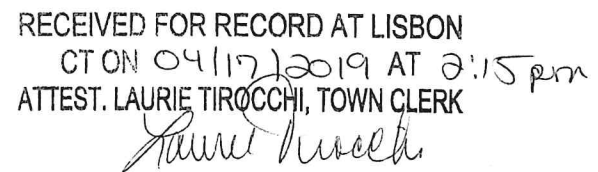 RECEIVED FOR RECORD AT LISBON
CT ON 04/17/2019 AT 2:15 pm
ATTEST. LAURIE TIROCCHI, TOWN CLERK
Laurie Tirocchi